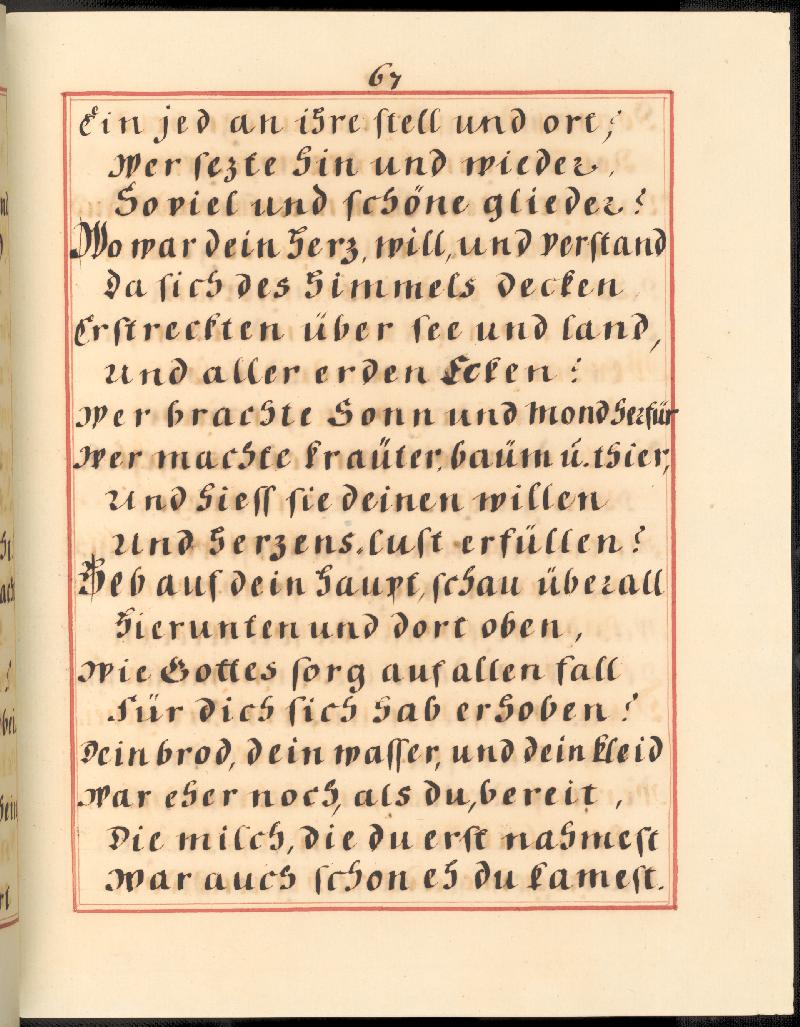 67
Ein jed an ihre stell und ort;
Wer sezte hin und wieder,
So viel und schöne glieder?
Wo war dein herz, will, und verstand
Da sich des himmels decken
Erstreckten über see und land,
Und aller erden Ecken?
Wer brachte Sonn und Mond herfür
Wer machte kraüter, baüm ú. thier,
Und hiess sie deinen willen
Und herzens.lust erfüllen?
Heb auf dein haupt, schau überall
hierunten und dort oben,
Wie Gottes sorg auf allen fall
Für dich sich hab erhoben?
Dein brod, dein wasser, und dein kleid
War eher noch, als du, bereit,
Die milch, die du erst nahmest
War auch schon eh du kamest.